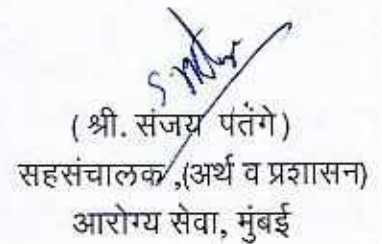 ( श्री. संजय पतंगे )
सहसंचालक ,(अर्थ व प्रशासन)
आरोग्य सेवा, मुंबई